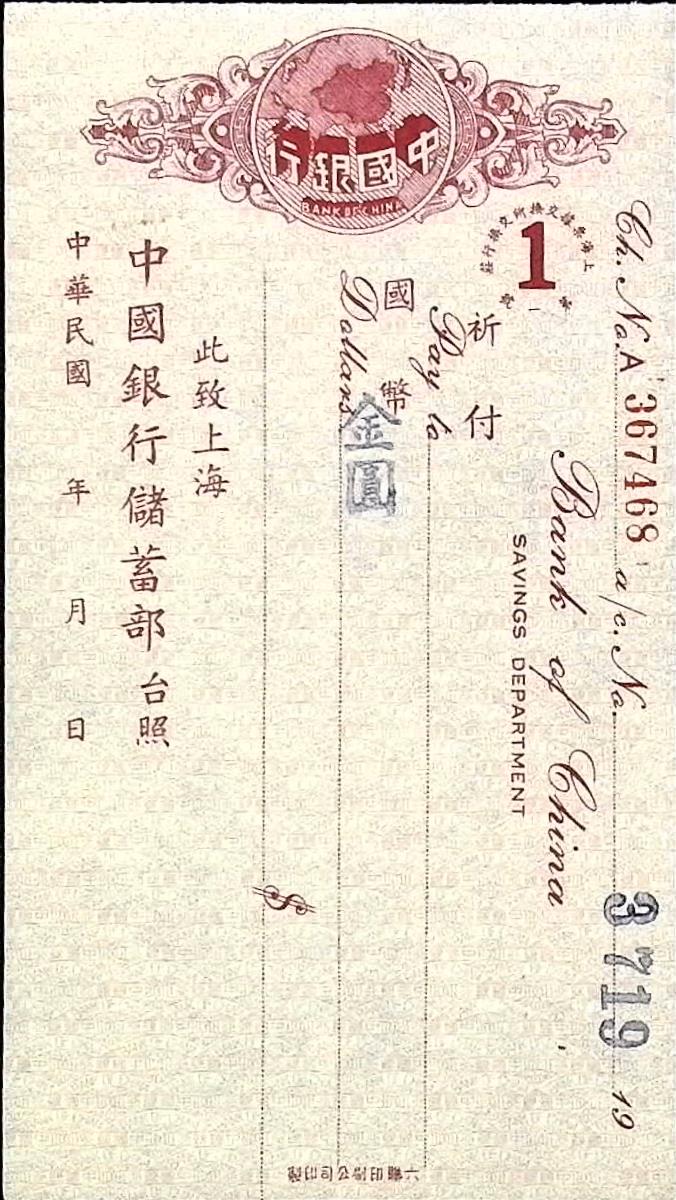 中國銀行
BANK OF CHINA
上海票據交換所交換行莊
1
第一號
Ch. No. A 367468 a/c. No. 3719 19
Bank of China
SAVINGS DEPARTMENT
祈付
Pay to
國幣
金圓
Dollars
$
此致上海
中國銀行儲蓄部 台照
中華民國 年 月 日